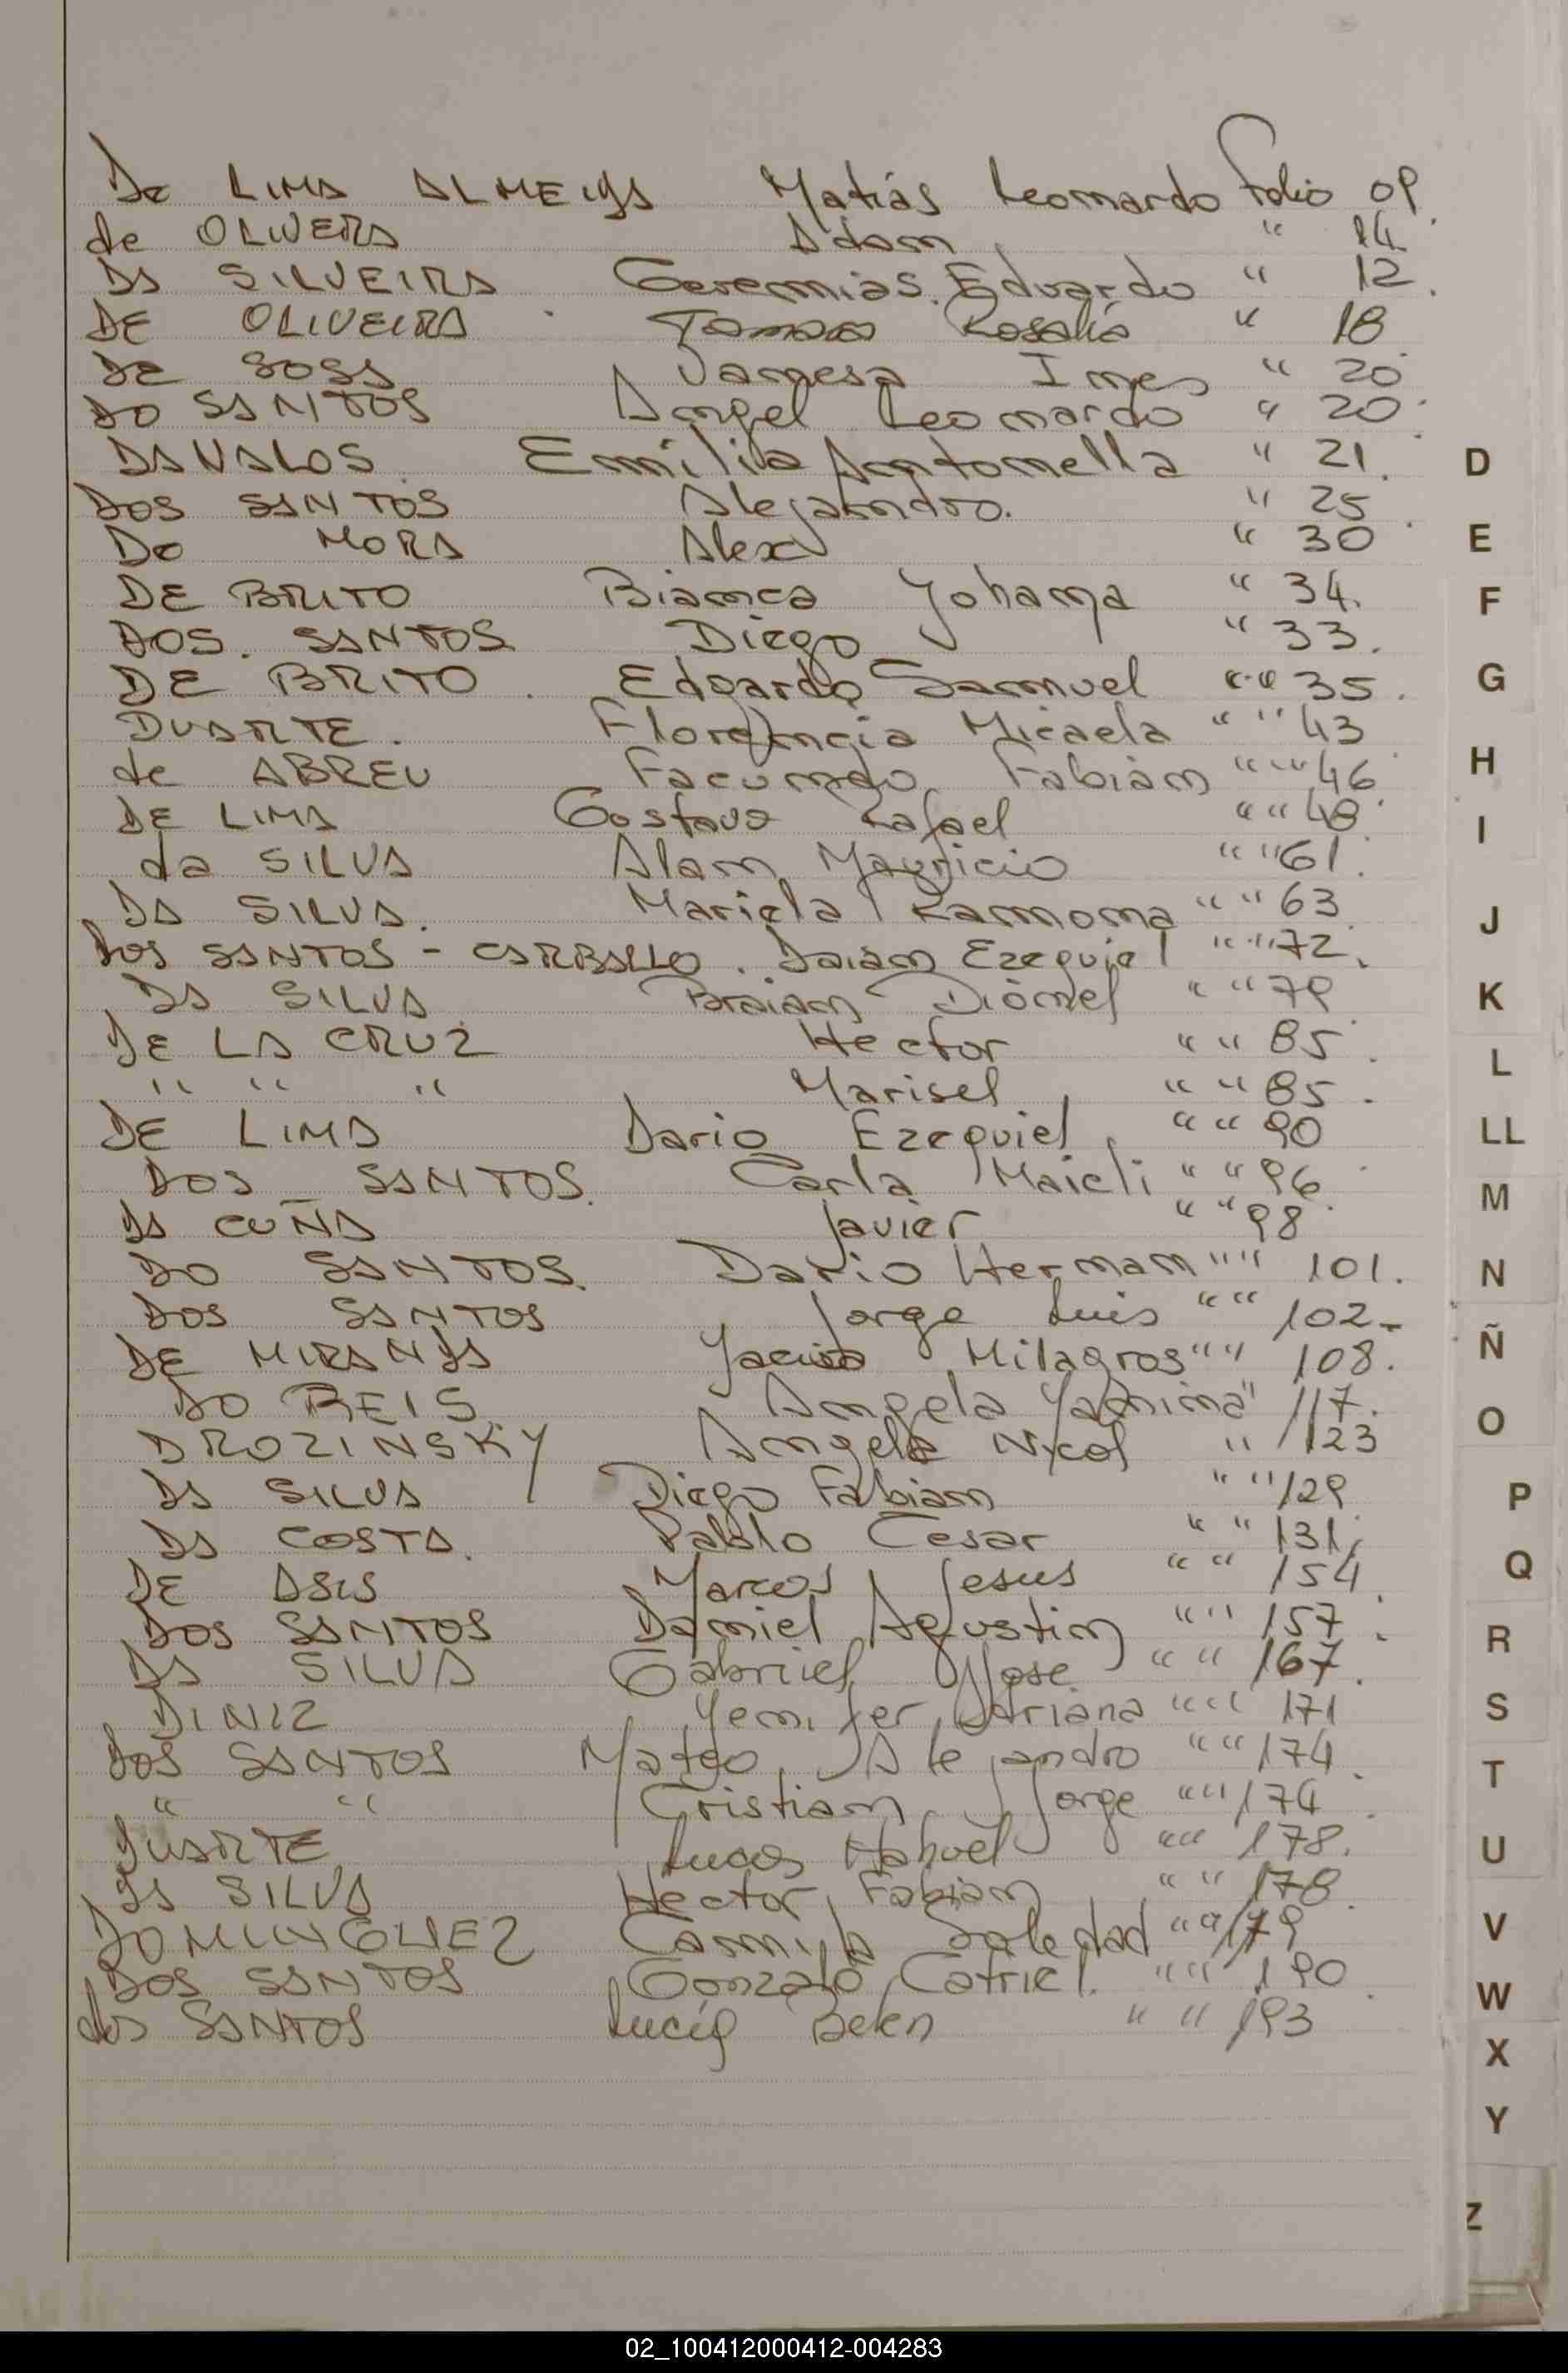 De LIMA ALMEIDA Matiás Leonardo Folio 09
de OLIVERA Adam " 14
DA SILVEIRA Geremias. Eduardo " 12.
DE OLIVEIRA Rosalia " 18
DE SOSA Vanesa Ines " 20
DO SANTOS Angel Leonardo " 20
DAVALOS Emilia Antonella " 21.
DOS SANTOS Alejandro. " 25
Do MORA Alex " 30
DE BRITO Bianca Yohana " 34.
DOS. SANTOS Diego " 33.
DE BRITO. Edgardo Samuel " " 35.
DUARTE. Florencia Micaela " " 43
de ABREU Facundo Fabián " " 46
DE LIMA Gustavo Rafael " " 48
da SILVA Alan Mauricio " " 61.
DA SILVA. Mariela Ramona " " 63
DOS SANTOS - CARBALLO. Daian Ezequiel " " 72.
DA SILVA Braian Diónel " " 79
DE LA CRUZ Hector " " 85.
" " " Marisel " " 85.
DE LIMA Dario Ezequiel " " 90
DOS SANTOS. Carla Maieli " " 96
DA CUÑA Javier " " 98
DO SANTOS. Dario Hernan " " 101.
DOS SANTOS Jorge Luis " " 102-
DE MIRANDA Milagros " " 108.
DO REIS Angela Yanina " 117.
DROZINSKY Angela Nicol " 123
DA SILVA Diego Fabian " " 129
DA COSTA. Pablo Cesar " " 131.
DE ASIS Marcos Jesus " " 154
DOS SANTOS Daniel Agustin " " 157
DA SILVA Gabriel Jose " " 167.
DINIZ Yenifer Adriana " " 171
DOS SANTOS Mateo Alejandro " " 174
" " Cristian Jorge " " 174
DUARTE Lucas Nahuel " " 178.
DA SILVA Hector Fabian " " 178
DOMINGUEZ Camila Soledad " " 179
DOS SANTOS Gonzalo Catriel. " " 190
dos SANTOS Lucia Belen " " 193
D
E
F
G
H
I
J
K
L
LL
M
N
Ñ
O
P
Q
R
S
T
U
V
W
X
Y
Z
02_100412000412-004283